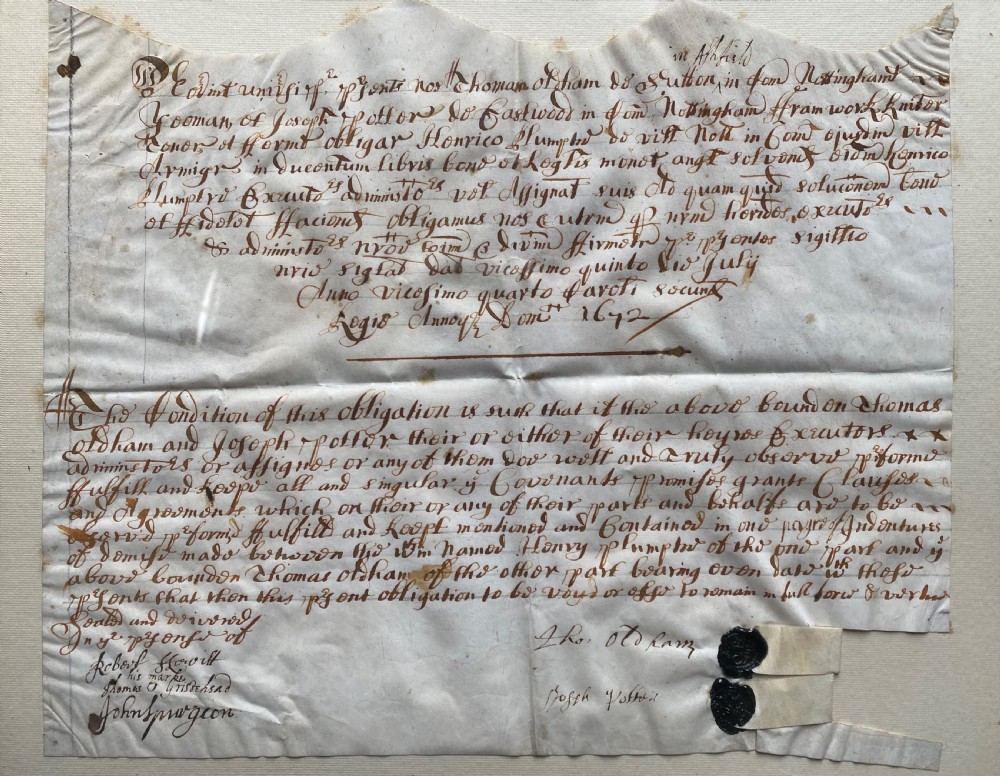 in Ashfield
Noverint universi p presents nos Thomam Oldham de Sutton in Com Nottingham
Yeoman et Joseph Potter de Eastwood in Com Nottingham fframworkkniter
Teneri et firmit obligar Henrico Plumptre de vill Nott in Com ejusdm vill
Armigr in ducentum libris bone et leglis monet angl solvend eidm henrico
Plumptre Executors administors vel Assignat suis Ad quam quid soluconem bene
et ffidelet ffaciend obligamus nos & utrm nrm heredes, executors
& administors nror firmetr pr presentes sigillo
nris siglat dat vicessimo quinto die July
Anno vicesimo quarto Caroli secund
Regis Annoq Dom 1672
The Condition of this obligation is such that if the above bounden Thomas
oldham and Joseph Potter their or either of their heyres Executors
administors or assignes or any of them doe well and Truly observe prforme
ffulfill and keepe all and singular ye Covenants promises grants Clauses
and Agreements which on their or any of their parts and behalfs are to be
observed prformd ffulfilld and kept mentioned and Contained in one payre of Indentures
of demise made between the named Henry Plumptre of the one part and ye
above bounden Thomas oldham of the other part bearing even date wth these
prsents that then this prsent obligation to be voyd or else to remain in full force & vertue
Sealed and delivered
In ye prsense of
Tho: Oldham
Robert Howitt
his marke
Thomas
Joseph Potter
John Spurgeon